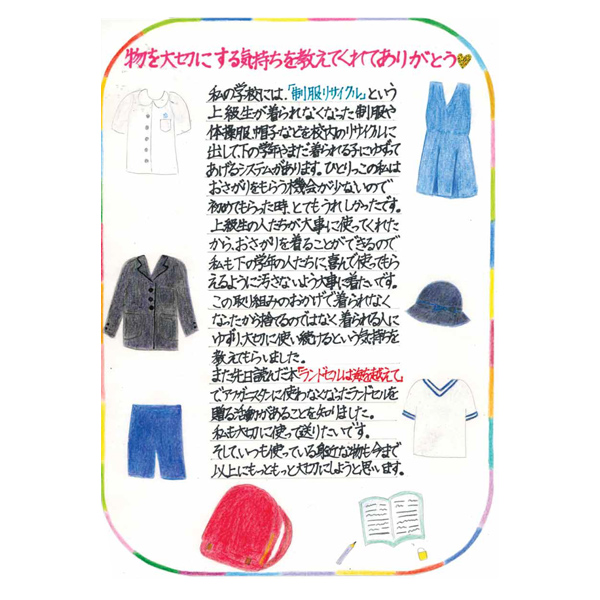 物を大切にする気持ちを教えてくれてありがとう
私の学校には、「制服リサイクル」という
上級生が着られなくなった制服や
体操服、帽子などを校内のリサイクルに
出して、下の学年やまだ着られる子にゆずって
あげるシステムがあります。ひとりっこの私は
おさがりをもらう機会が少ないので
初めてもらった時、とてもうれしかったです。
上級生の人たちが大事に使ってくれた
から、おさがりを着ることができるので
私も下の学年の人たちに、喜んで使ってもら
えるように汚さないよう大事に着たいです。
この取り組みのおかげで着られなく
なったから捨てるのではなく、着られる人に
ゆずり、大切に使い続けるという気持ちを
教えてもらいました。
また先日読んだ本「ランドセルは海を越えて」
でアフガニスタンに使わなくなったランドセルを
贈る活動があることを知りました。
私も大切に使って送りたいです。
そして、いつも使っている身近な物も今まで
以上にもっともっと大切にしようと思います。